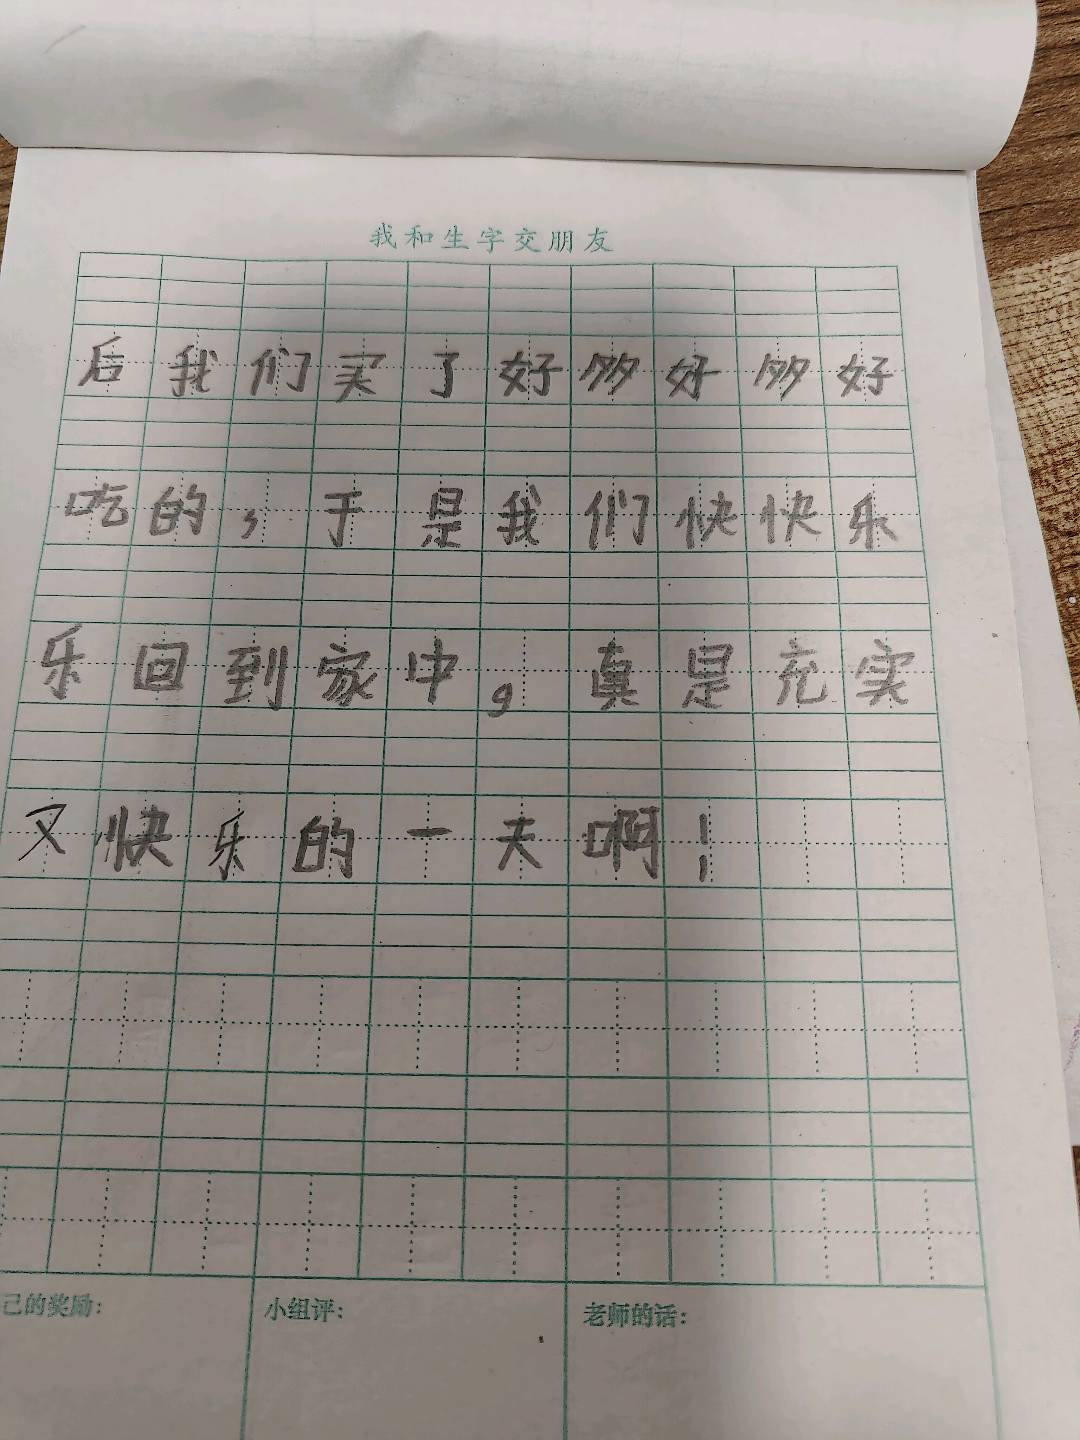 我和生字交朋友
后我们买了好够好够好
吃的,于是我们快快乐
乐回到家中。真是充实
又快乐的一天啊!
己的奖励:
小组评:
老师的话: